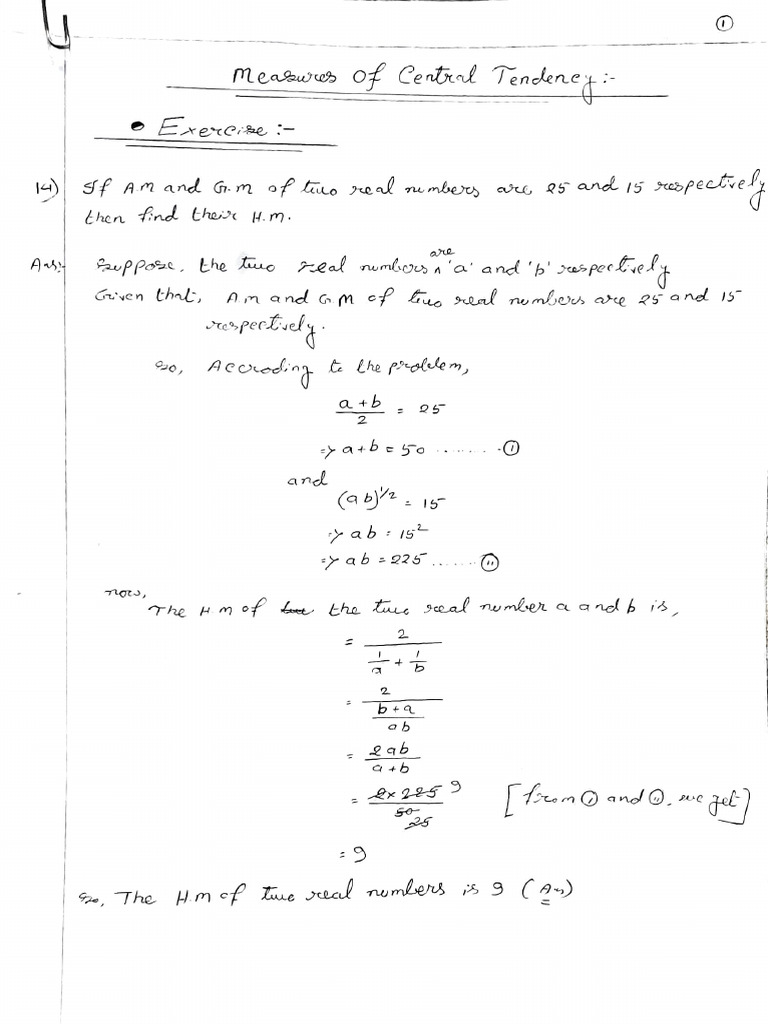 ①
Measures Of Central Tendency:-
• Exercise:-
14) If A.M and G.M of two real numbers are 25 and 15 respectively
then find their H.M.
Ans:- Suppose, the two real numbers are 'a' and 'b' respectively
Given that, A.M and G.M of two real numbers are 25 and 15
respectively.
So, Accroding to the problem,
a+b/2 = 25
=> a+b = 50 ........ ①
and
(ab)^1/2 = 15
=> ab = 15²
=> ab = 225 ...... ⑪
now,
The H.M of the two real number a and b is,
= 2/(1/a + 1/b)
= 2/((b+a)/ab)
= 2ab/a+b
= 2×225/50 9 25 [from ① and ⑪, we get]
= 9
So, The H.M of two real numbers is 9 (Ans)